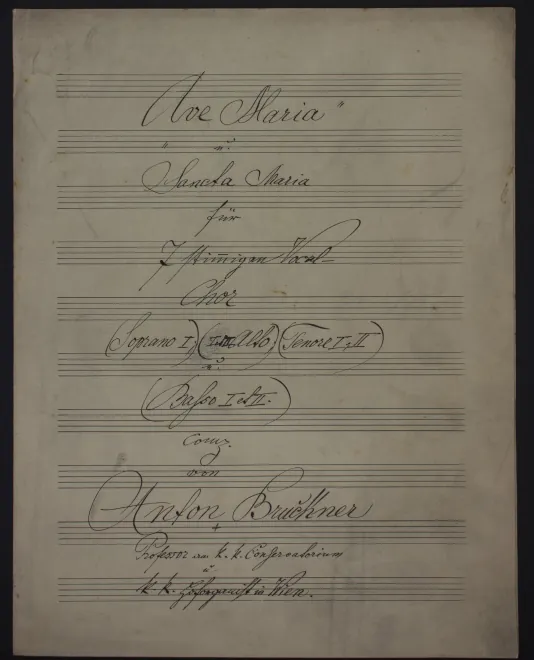 Ave Maria"
" u:
Sancta Maria
für
7 stimigen Vocal-
Chor
(Soprano I,) (Alto;) (Tenore I, II)
u:
(Basso I et II.)
Comp.
von
Anton Bruckner
+
Professor am k. k. Conservatorium
u.
k. k. Hoforganist in Wien.